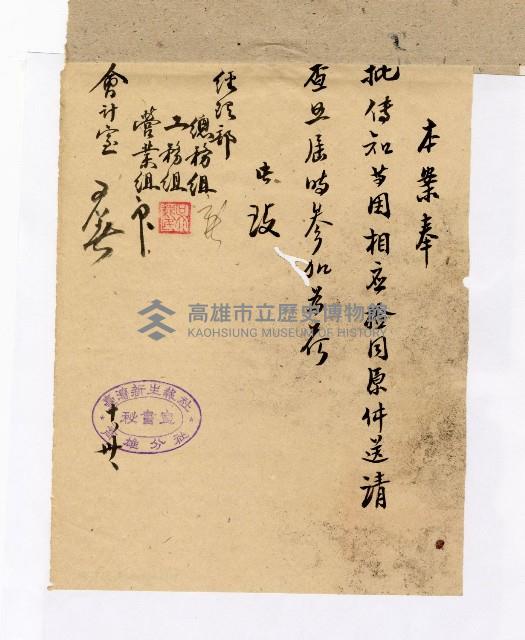 本案奉
批傳知等因相应檢同原件送請
查照屆時參加為荷
此致
經理部
總務組
工務組
營業組
會計室
臺灣新生報社
秘書室
高雄分社
十、卅
高雄市立歷史博物館
KAOHSIUNG MUSEUM OF HISTORY